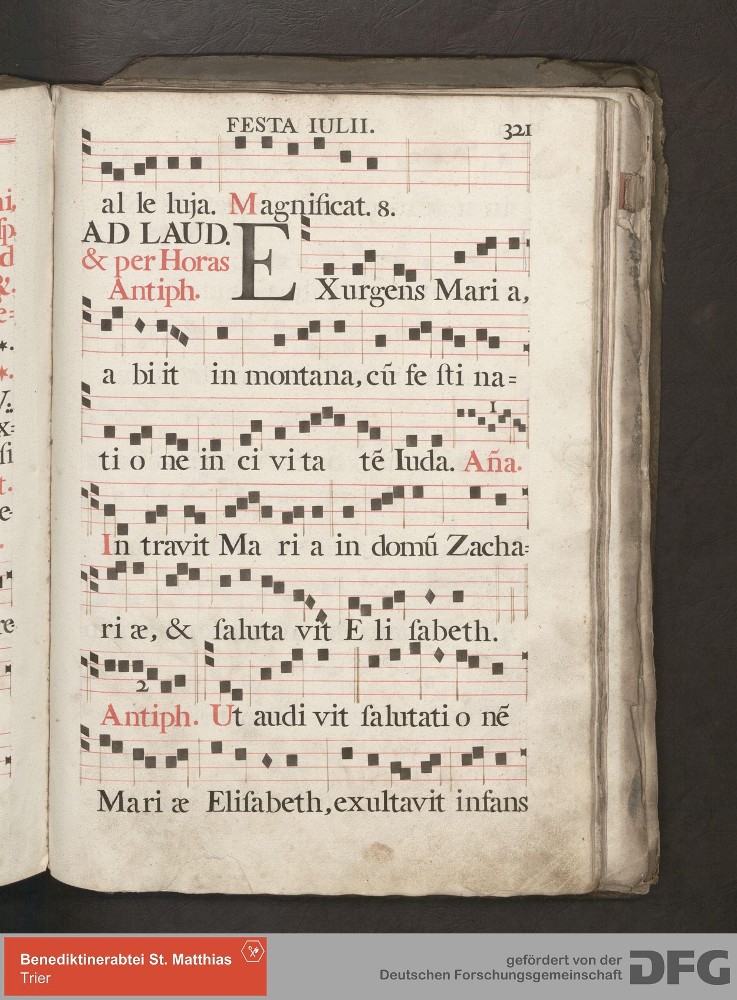 FESTA IULII. 321
al le luja. Magnificat. 8.
AD LAUD.
& per Horas
Antiph.
EXurgens Mari a,
a bi it in montana, cũ fe ſti na=
ti o ne in ci vi ta tẽ Iuda. Aña.
1
In travit Ma ri a in domũ Zacha=
ri æ, & ſaluta vit E li ſabeth.
2
Antiph. Ut audi vit ſalutati o nẽ
Mari æ Eliſabeth, exultavit infans
Benediktinerabtei St. Matthias
Trier
gefördert von der
Deutschen Forschungsgemeinschaft
DFG